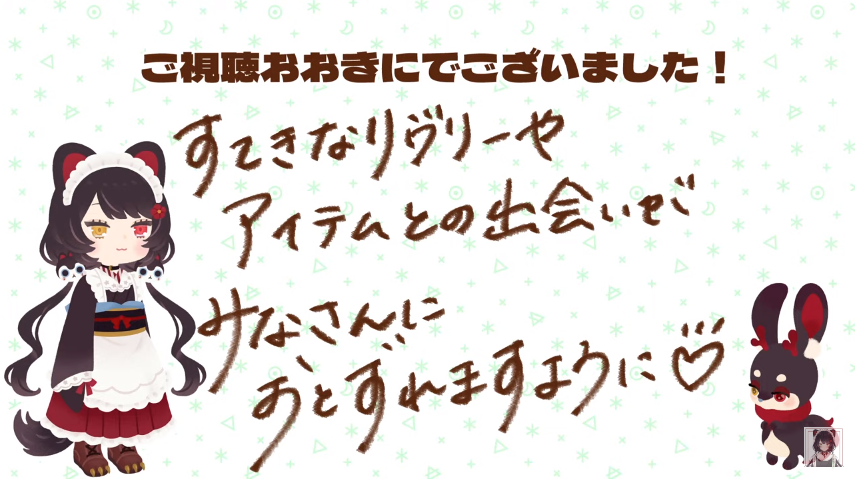 ご視聴おおきにでございました！
すてきなリヴリーや
アイテムとの出会いが
みなさんに
おとずれますように♡